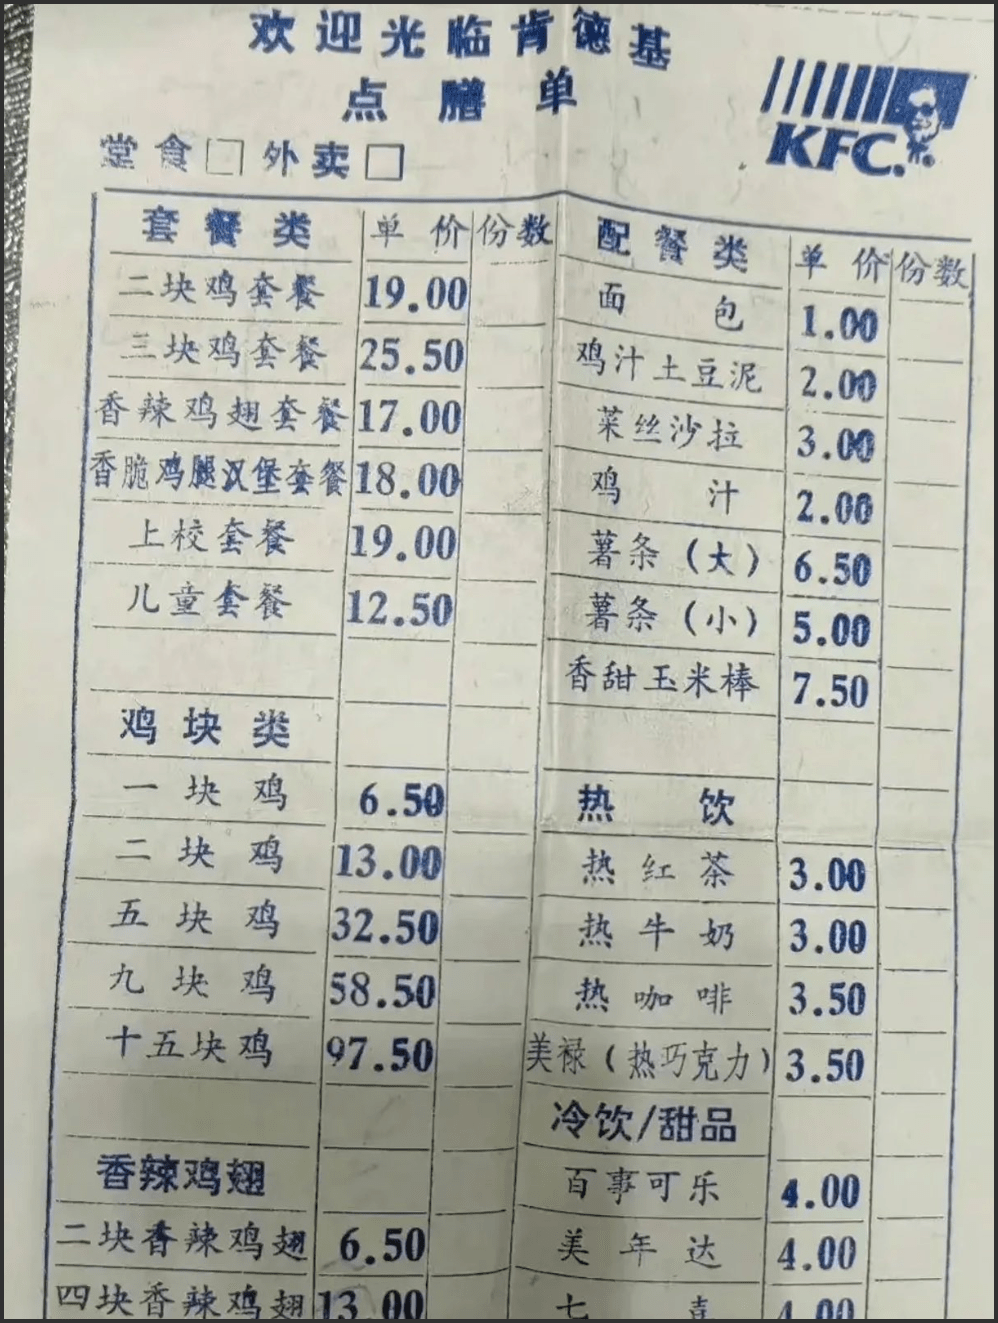 欢迎光临肯德基
点膳单
KFC.
堂食□ 外卖□
套餐类 单价 份数
二块鸡套餐 19.00
三块鸡套餐 25.50
香辣鸡翅套餐 17.00
香脆鸡腿汉堡套餐 18.00
上校套餐 19.00
儿童套餐 12.50
鸡块类
一块鸡 6.50
二块鸡 13.00
五块鸡 32.50
九块鸡 58.50
十五块鸡 97.50
香辣鸡翅
二块香辣鸡翅 6.50
四块香辣鸡翅 13.00
配餐类 单价 份数
面包 1.00
鸡汁土豆泥 2.00
菜丝沙拉 3.00
鸡汁 2.00
薯条(大) 6.50
薯条(小) 5.00
香甜玉米棒 7.50
热饮
热红茶 3.00
热牛奶 3.00
热咖啡 3.50
美禄(热巧克力) 3.50
冷饮/甜品
百事可乐 4.00
美年达 4.00
七喜 4.00